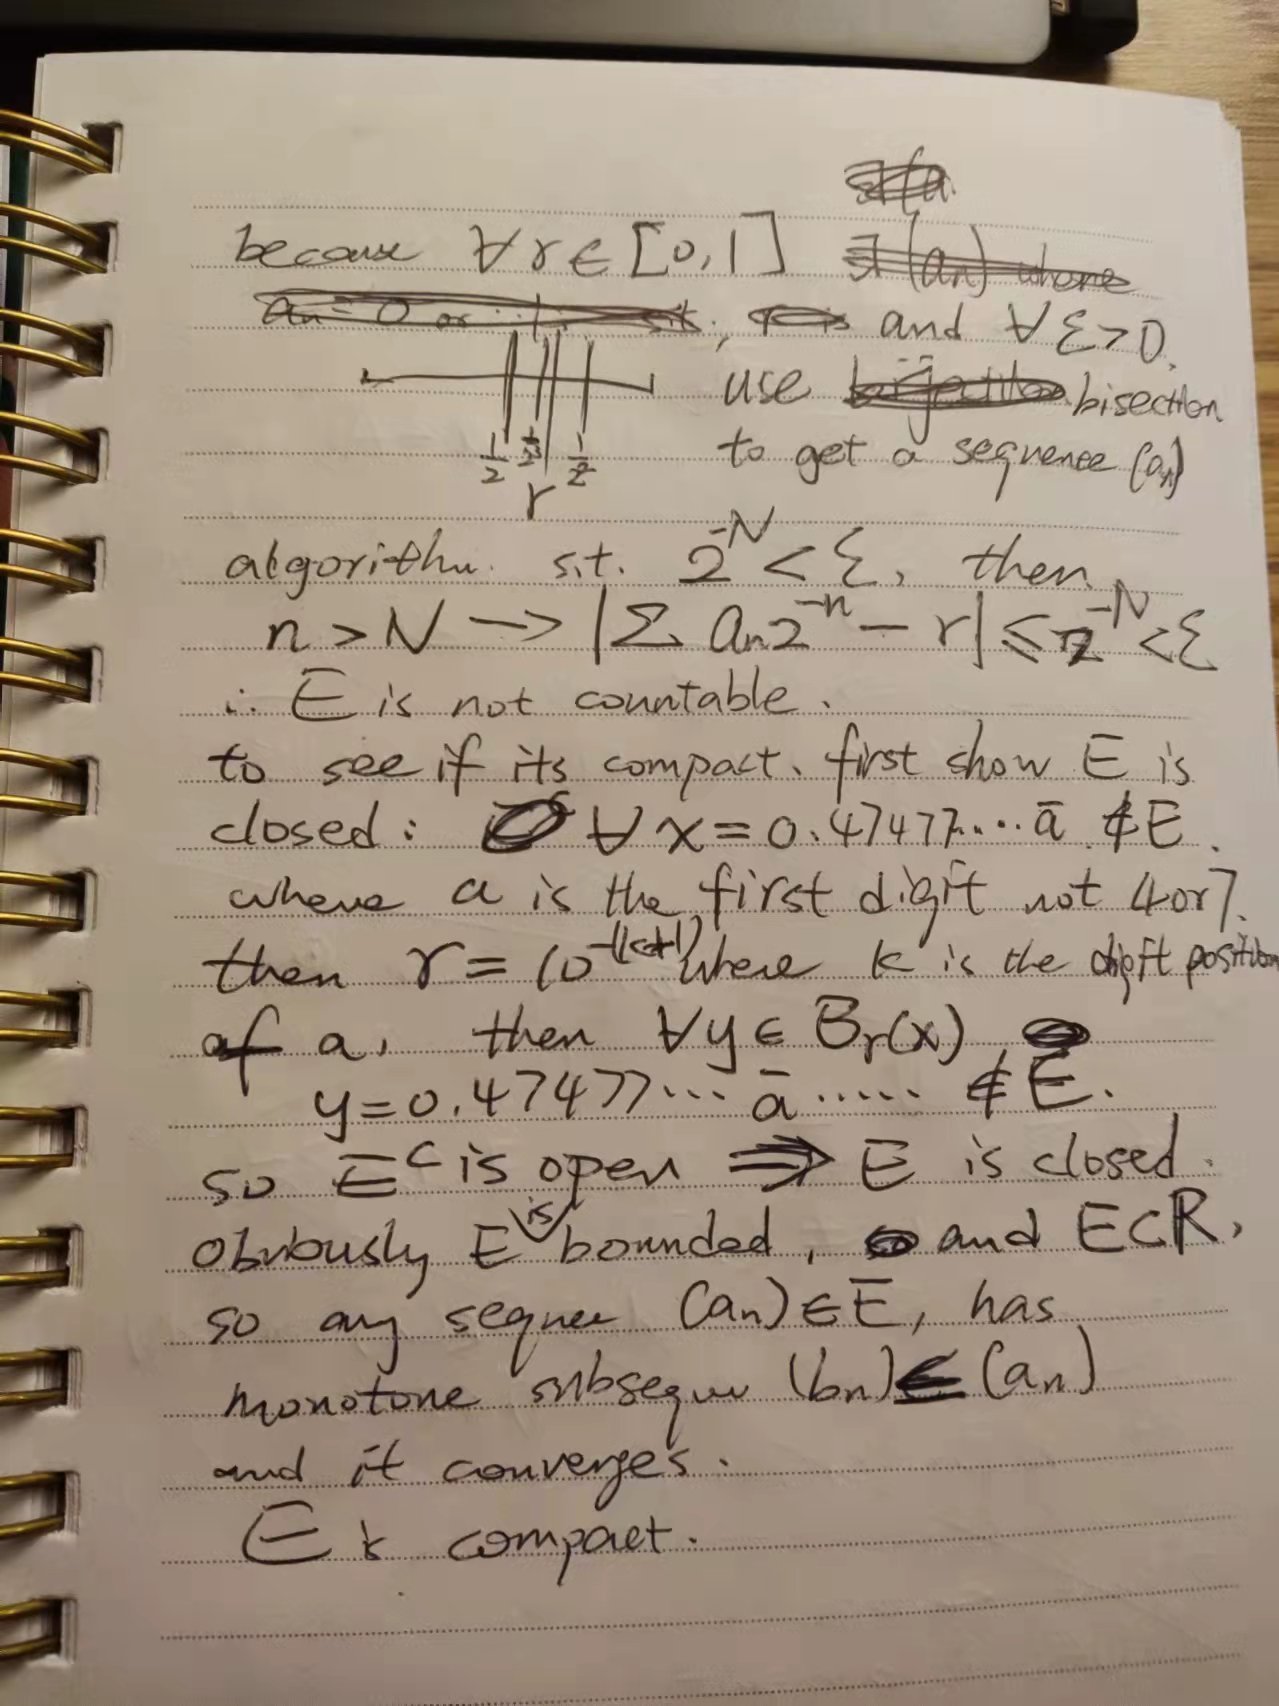 because ∀ r ∈ [0,1]
, and ∀ ε > 0.
use bisection
to get a sequence (an)
1/2 1/2³ 1/2²
r
algorithm. s.t. 2^-N < ε, then
n > N → |Σ an2^-n - r| ≤ 2^-N < ε
∴ E is not countable.
to see if its compact. first show E is
closed: ∀ x = 0.47477....ā ∉ E.
where a is the first digit not 4 or 7.
then r = 10^-(k+1) where k is the digit position
of a, then ∀ y ∈ Br(x)
y = 0.47477... ā ...... ∉ E.
so E^c is open ⇒ E is closed.
obviously E is bounded, and E ⊂ R,
so any sequee (an) ∈ E, has
monotone subsequ (bn) ⊆ (an)
and it converges.
E is compact.